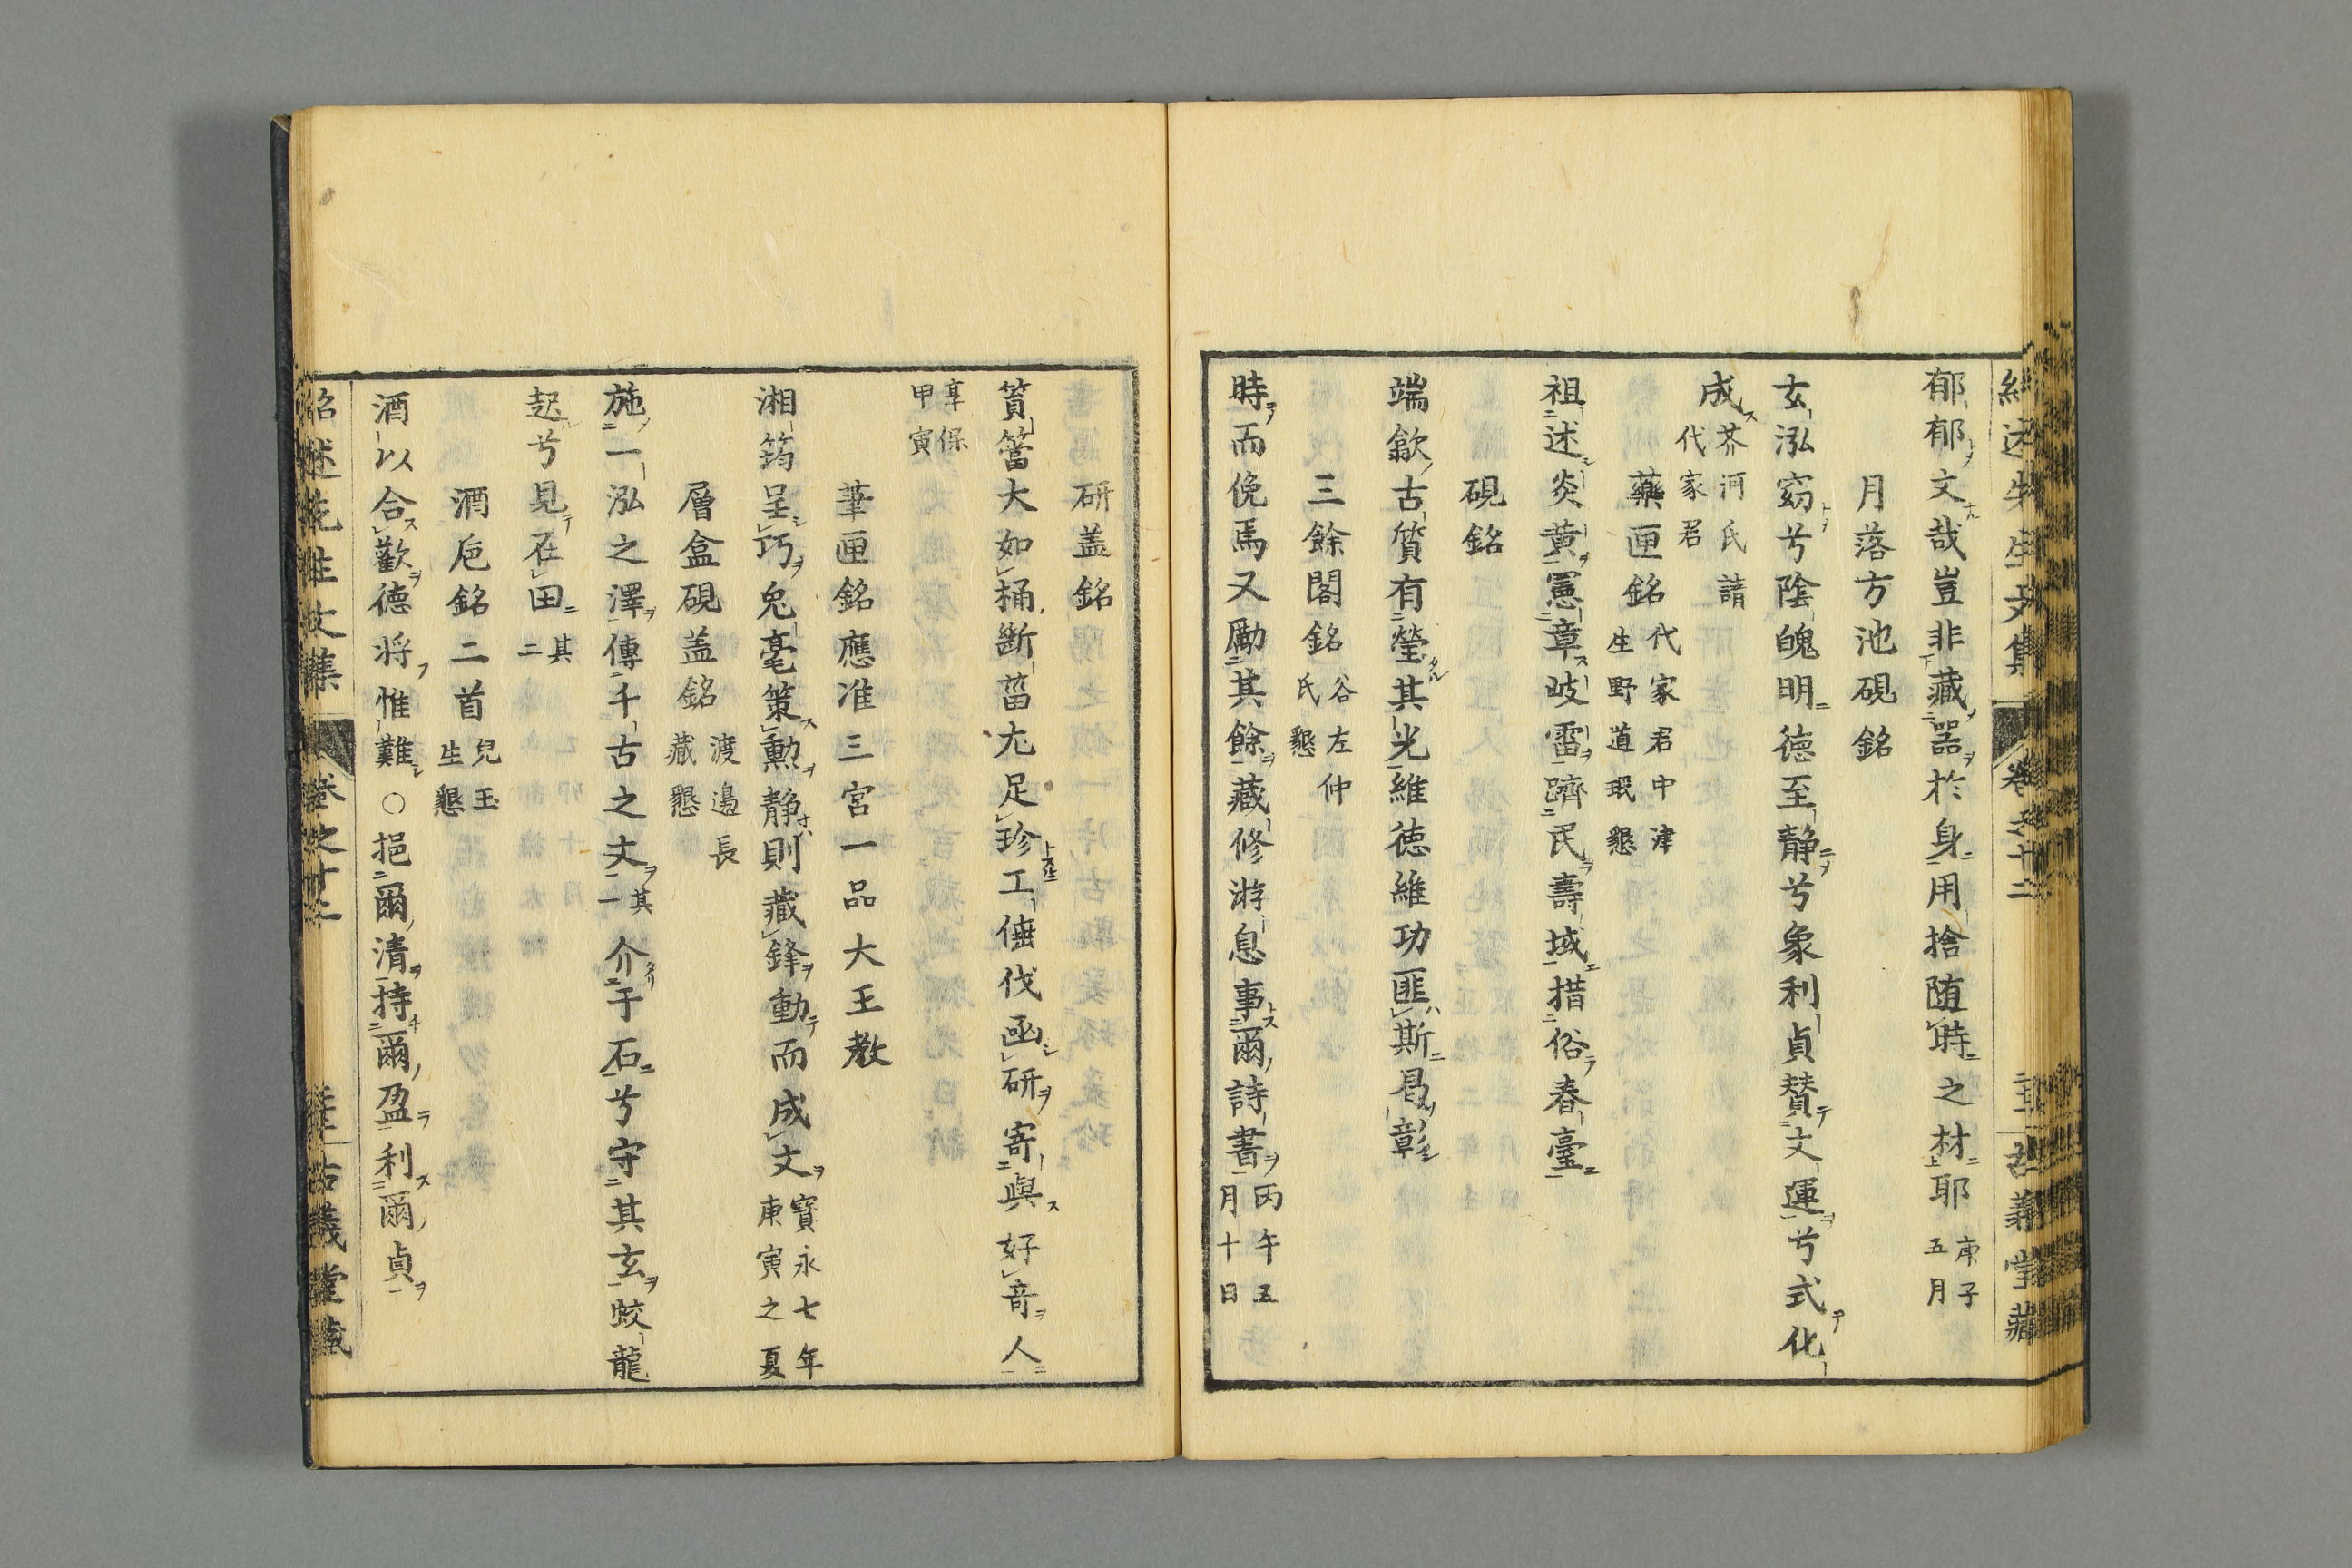 紹述先生文集 卷之十二 古義堂藏
郁郁文哉豈非藏器於身用捨随時之材耶 庚子五月
月落方池硯銘
玄泓窈兮陰魄明徳至静兮象利貞賛文運兮式化
成 芥河氏請代家君
藥匣銘 代家君中津生野道珉懇
祖述炎黄憲章岐雷躋民壽域措俗春臺
硯銘
端歙古質有瑩其光維徳維功匪斯曷彰
三餘閣銘 谷左仲氏懇
時而俛焉又勵其餘藏修游息事爾詩書 丙午五月十日
研盖銘
篔簹大如桶斷菑尢足珍工倕伐函研寄與好竒人
享保甲寅
筆匣銘應准三宮一品大王教
湘筠呈巧兎毫策勲静則藏鋒動而成文 寳永七年庚寅之夏
層盒硯盖銘 渡邉長藏懇
施一泓之澤傳千古之文 其一 介于石兮守其玄蛟龍
起兮見在田 其二
酒巵銘二首 兒玉生懇
酒以合歡德将惟難○挹爾清持爾盈利爾貞
紹述先生文集 卷之十二 古義堂藏